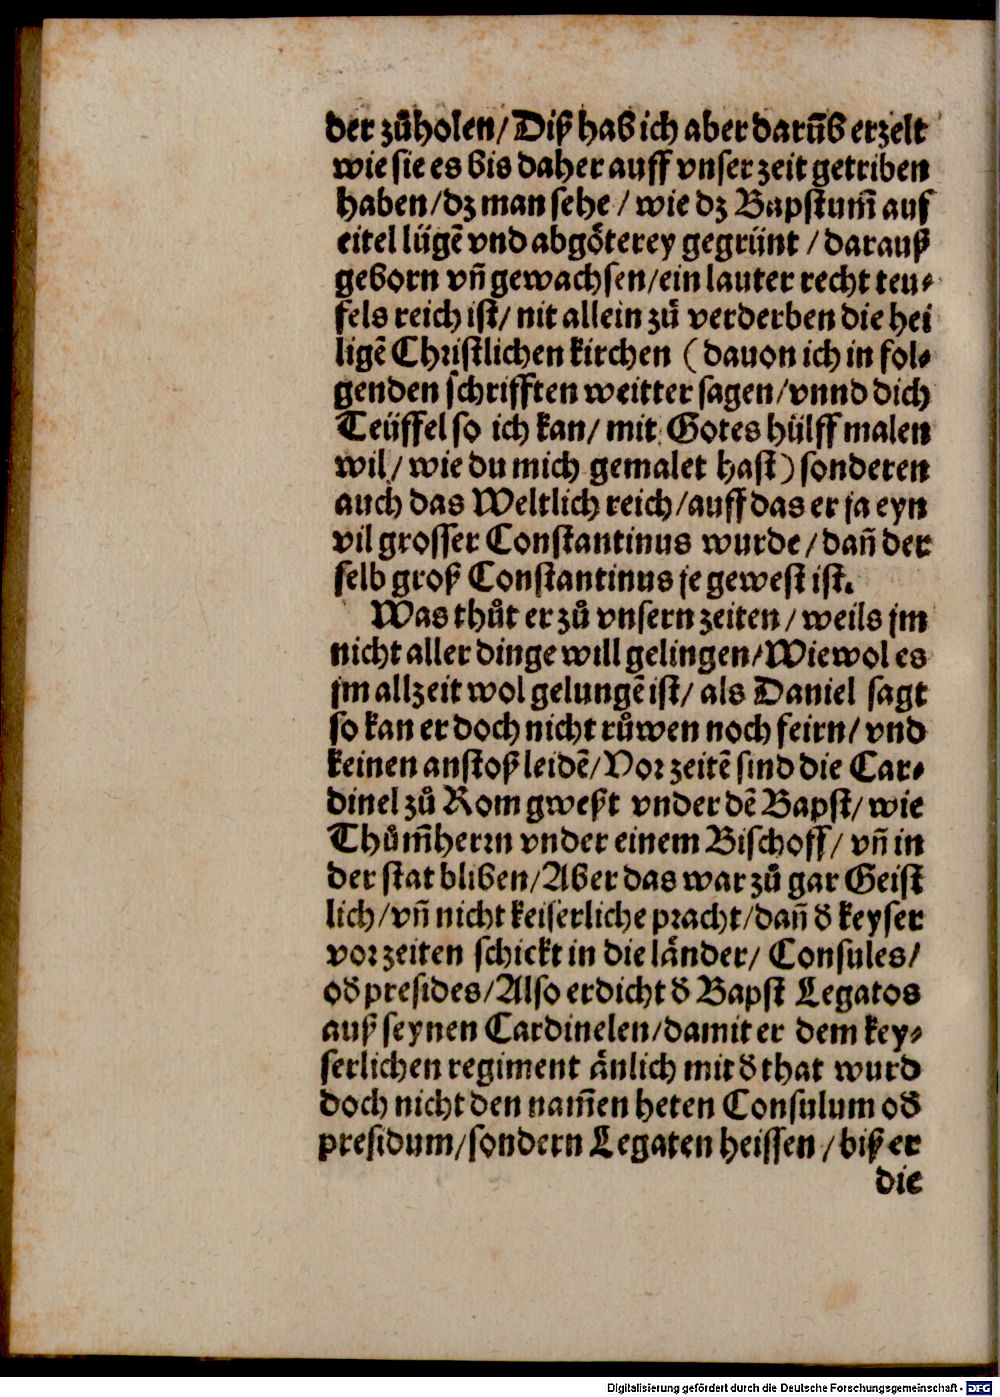 der zůholen/ Diß hab ich aber darūb erzelt
wie sie es bis daher auff vnser zeit getriben
haben/ dz man sehe / wie dz Bapstum̄ auf
eitel lügē vnd abgoͤterey gegrünt / darauß
geborn vn̄ gewachsen/ ein lauter recht teu⸗
fels reich ist/ nit allein zů verderben die hei
ligē Christlichen kirchen ( dauon ich in fol⸗
genden schrifften weitter sagen/ vnnd dich
Teüffel so ich kan/ mit Gotes hülff malen
wil/ wie du mich gemalet hast) sonderen
auch das Weltlich reich/ auff das er ja eyn
vil grosser Constantinus wurde/ dan̄ der
selb groß Constantinus je gewest ist.
Was thůt er zů vnsern zeiten/ weils jm
nicht aller dinge will gelingen/ Wiewol es
jm allzeit wol gelungē ist/ als Daniel sagt
so kan er doch nicht růwen noch feirn/ vnd
keinen anstoß leidē/ Vor zeitē sind die Car⸗
dinel zů Rom gweßt vnder dē Bapst/ wie
Thům̄herrn vnder einem Bischoff/ vn̄ in
der stat bliben/ Aber das war zů gar Geist
lich/ vn̄ nicht keiserliche pracht/ dan̄ d̕ keyser
vor zeiten schickt in die laͤnder/ Consules/
od̕ presides/ Also erdicht d̕ Bapst Legatos
auß seynen Cardinelen/ damit er dem key⸗
serlichen regiment aͤnlich mit d̕ that wurd
doch nicht den nam̄en heten Consulum od̕
presidum/ sondern Legaten heissen / biß er
die
Digitalisierung gefördert durch die Deutsche Forschungsgemeinschaft - DFG